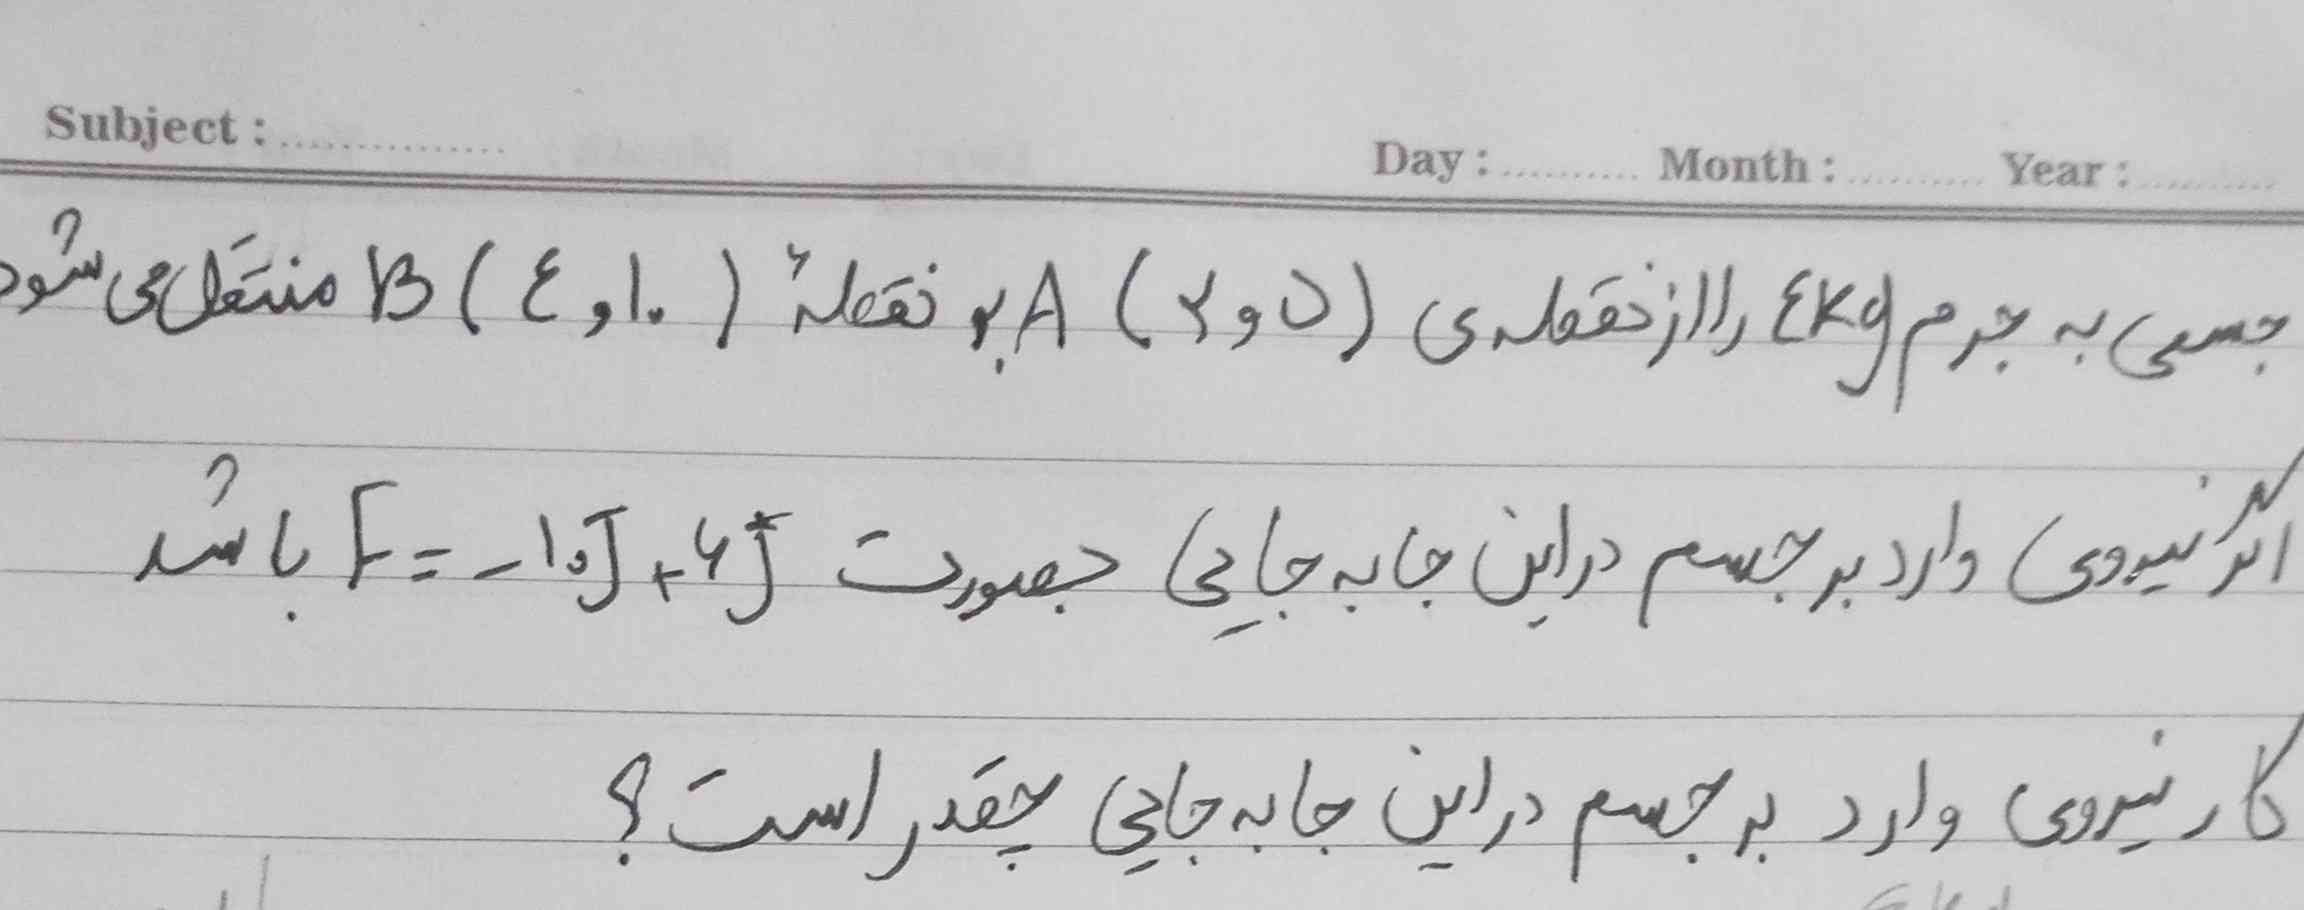 Subject : ............... Day : .......... Month : .......... Year : ..........
جسمی به جرم ٤kg را از نقطه‌ی (۵ و ۲) A به نقطهٔ (۱۰ و ٤) B منتقل می شود
اگر نیروی وارد بر جسم در این جا به جایی بصورت F = -۱۰J + ۶J باشد
کار نیروی وارد بر جسم در این جا به جایی چقدر است ؟